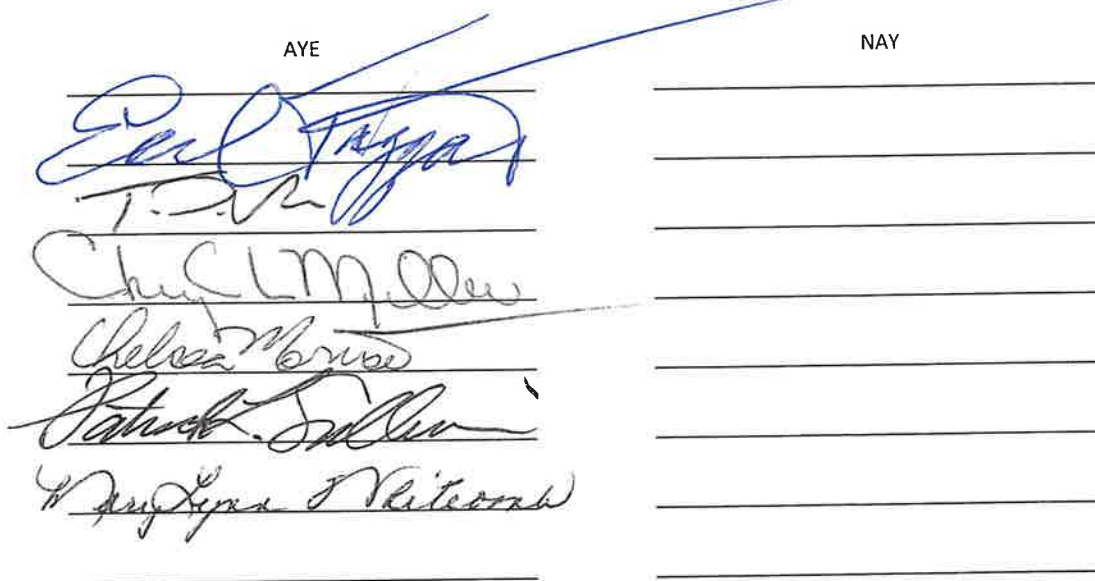 AYE NAY
Earl
T.
Cheryl L Miller
Chelsea
Patrick L. Sullivan
Mary Lynn Whitcomb